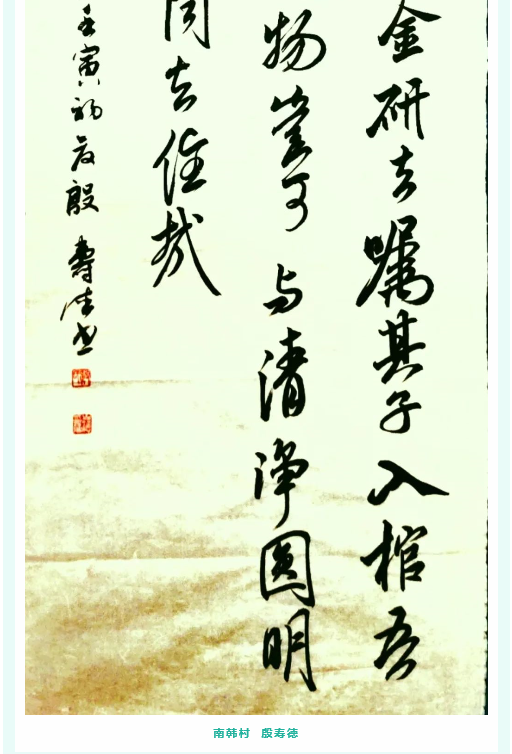 金研去嘱其子入棺吾
物豈可与清浄圓明
同去住哉
壬寅初夏殷壽德书
南韩村 殷寿德